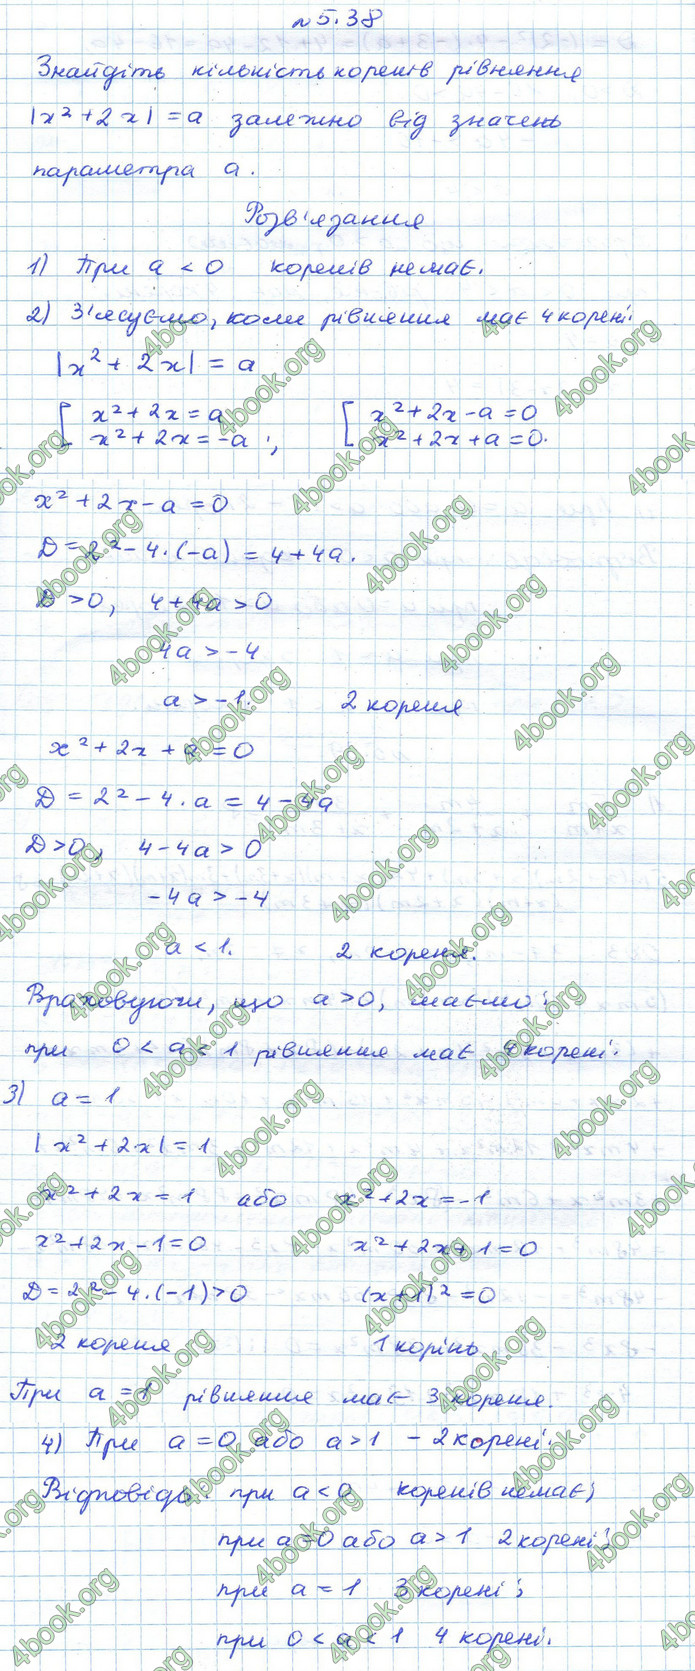 №5.38
Знайдіть кількість коренів рівняння
|x²+2x| = a залежно від значень
параметра a.
Розв'язання
1) При a < 0 коренів немає.
2) З'ясуємо, коли рівняння має 4 корені.
|x² + 2x| = a
[ x²+2x = a [ x²+2x-a = 0
x²+2x = -a ; x²+2x+a = 0.
x²+2x-a = 0
D = 2²-4·(-a) = 4+4a.
D > 0, 4+4a > 0
4a > -4
a > -1. 2 кореня
x²+2x+a = 0
D = 2²-4·a = 4-4a
D > 0, 4-4a > 0
-4a > -4
a < 1. 2 кореня.
Враховуючи, що a > 0, маємо:
при 0 < a < 1 рівняння має 4 корені.
3) a = 1
|x²+2x| = 1
x²+2x = 1 або x²+2x = -1
x²+2x-1 = 0 x²+2x+1 = 0
D = 2²-4·(-1) > 0 (x+1)² = 0
2 кореня 1 корінь
При a = 1 рівняння має 3 кореня.
4) При a = 0 або a > 1 - 2 корені.
Відповідь: при a < 0 коренів немає;
при a = 0 або a > 1 2 корені;
при a = 1 3 корені;
при 0 < a < 1 4 корені.
4book.org